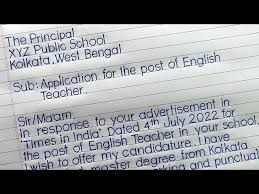 The Principal
XYZ Public School
Kolkata, West Bengal
Sub: Application for the post of English
Teacher.
Sir/Ma'am,
In response to your advertisement in
'Times in India'. Dated 4th July 2022 for
the post of English Teacher in your school,
I wish to offer my candidature. I have
master degree from Kolkata
and punctual